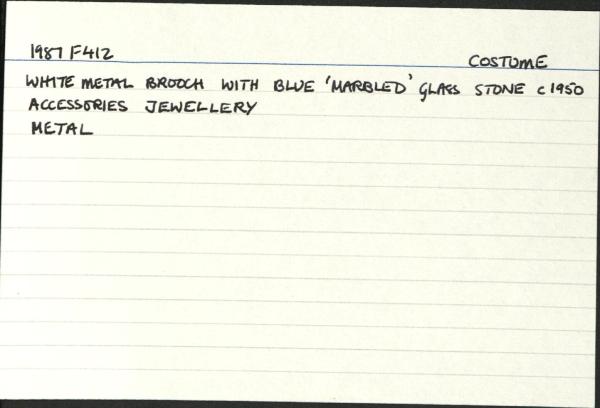 1987 F412 COSTUME
WHITE METAL BROOCH WITH BLUE 'MARBLED' GLASS STONE c 1950
ACCESSORIES JEWELLERY
METAL